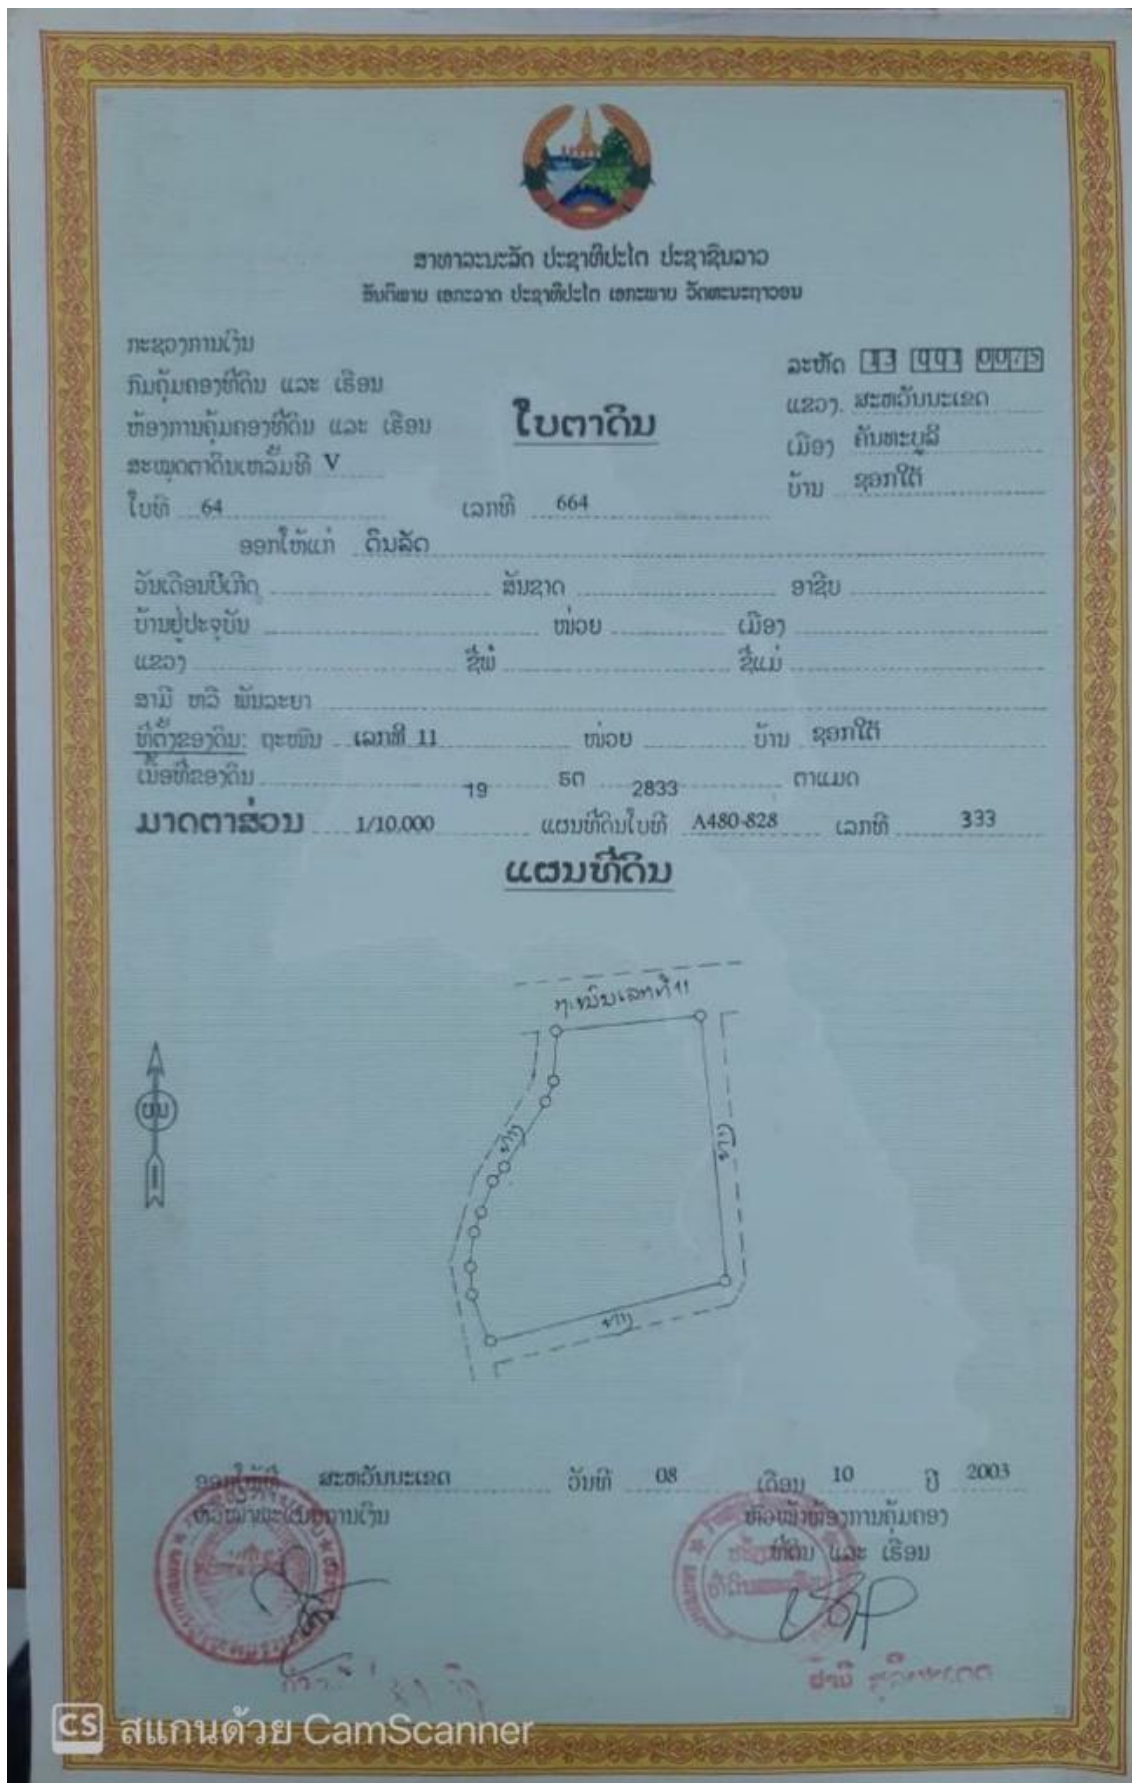 ສາທາລະນະລັດ ປະຊາທິປະໄຕ ປະຊາຊົນລາວ
ສັນຕິພາບ ເອກະລາດ ປະຊາທິປະໄຕ ເອກະພາບ ວັດທະນະຖາວອນ
ກະຊວງການເງິນ
ກົມຄຸ້ມຄອງທີ່ດິນ ແລະ ເຮືອນ
ຫ້ອງການຄຸ້ມຄອງທີ່ດິນ ແລະ ເຮືອນ
ສະໝຸດຕາດິນເຫລັ້ມທີ V
ໃບຕາດິນ
ລະຫັດ 13 0075
ແຂວງ. ສະຫວັນນະເຂດ
ເມືອງ ຄັນທະບູລີ
ບ້ານ ຊອກໃຕ້
ໃບທີ 64 ເລກທີ 664
ອອກໃຫ້ແກ່ ດິນລັດ
ວັນເດືອນປີເກີດ ສັນຊາດ ອາຊີບ
ບ້ານຢູ່ປະຈຸບັນ ໜ່ວຍ ເມືອງ
ແຂວງ ຊື່ພໍ່ ຊື່ແມ່
ສາມີ ຫລື ພັນລະຍາ
ທີ່ຕັ້ງຂອງດິນ: ຖະໜົນ ເລກທີ 11 ໜ່ວຍ ບ້ານ ຊອກໃຕ້
ເນື້ອທີ່ຂອງດິນ 19 ຮຕ 2833 ຕາແມດ
ມາດຕາສ່ວນ 1/10.000 ແຜນທີ່ດິນໃບທີ A480-828 ເລກທີ 333
ແຜນທີ່ດິນ
ຖະໜົນເລກທີ 11
ທາງ
ທາງ
ທາງ
ອອກໃຫ້ທີ່ ສະຫວັນນະເຂດ ວັນທີ 08 ເດືອນ 10 ປີ 2003
ຫົວໜ້າພະແນກການເງິນ
ຫົວໜ້າຫ້ອງການຄຸ້ມຄອງ
ທີ່ດິນ ແລະ ເຮືອນ
CS สแกนด้วย CamScanner